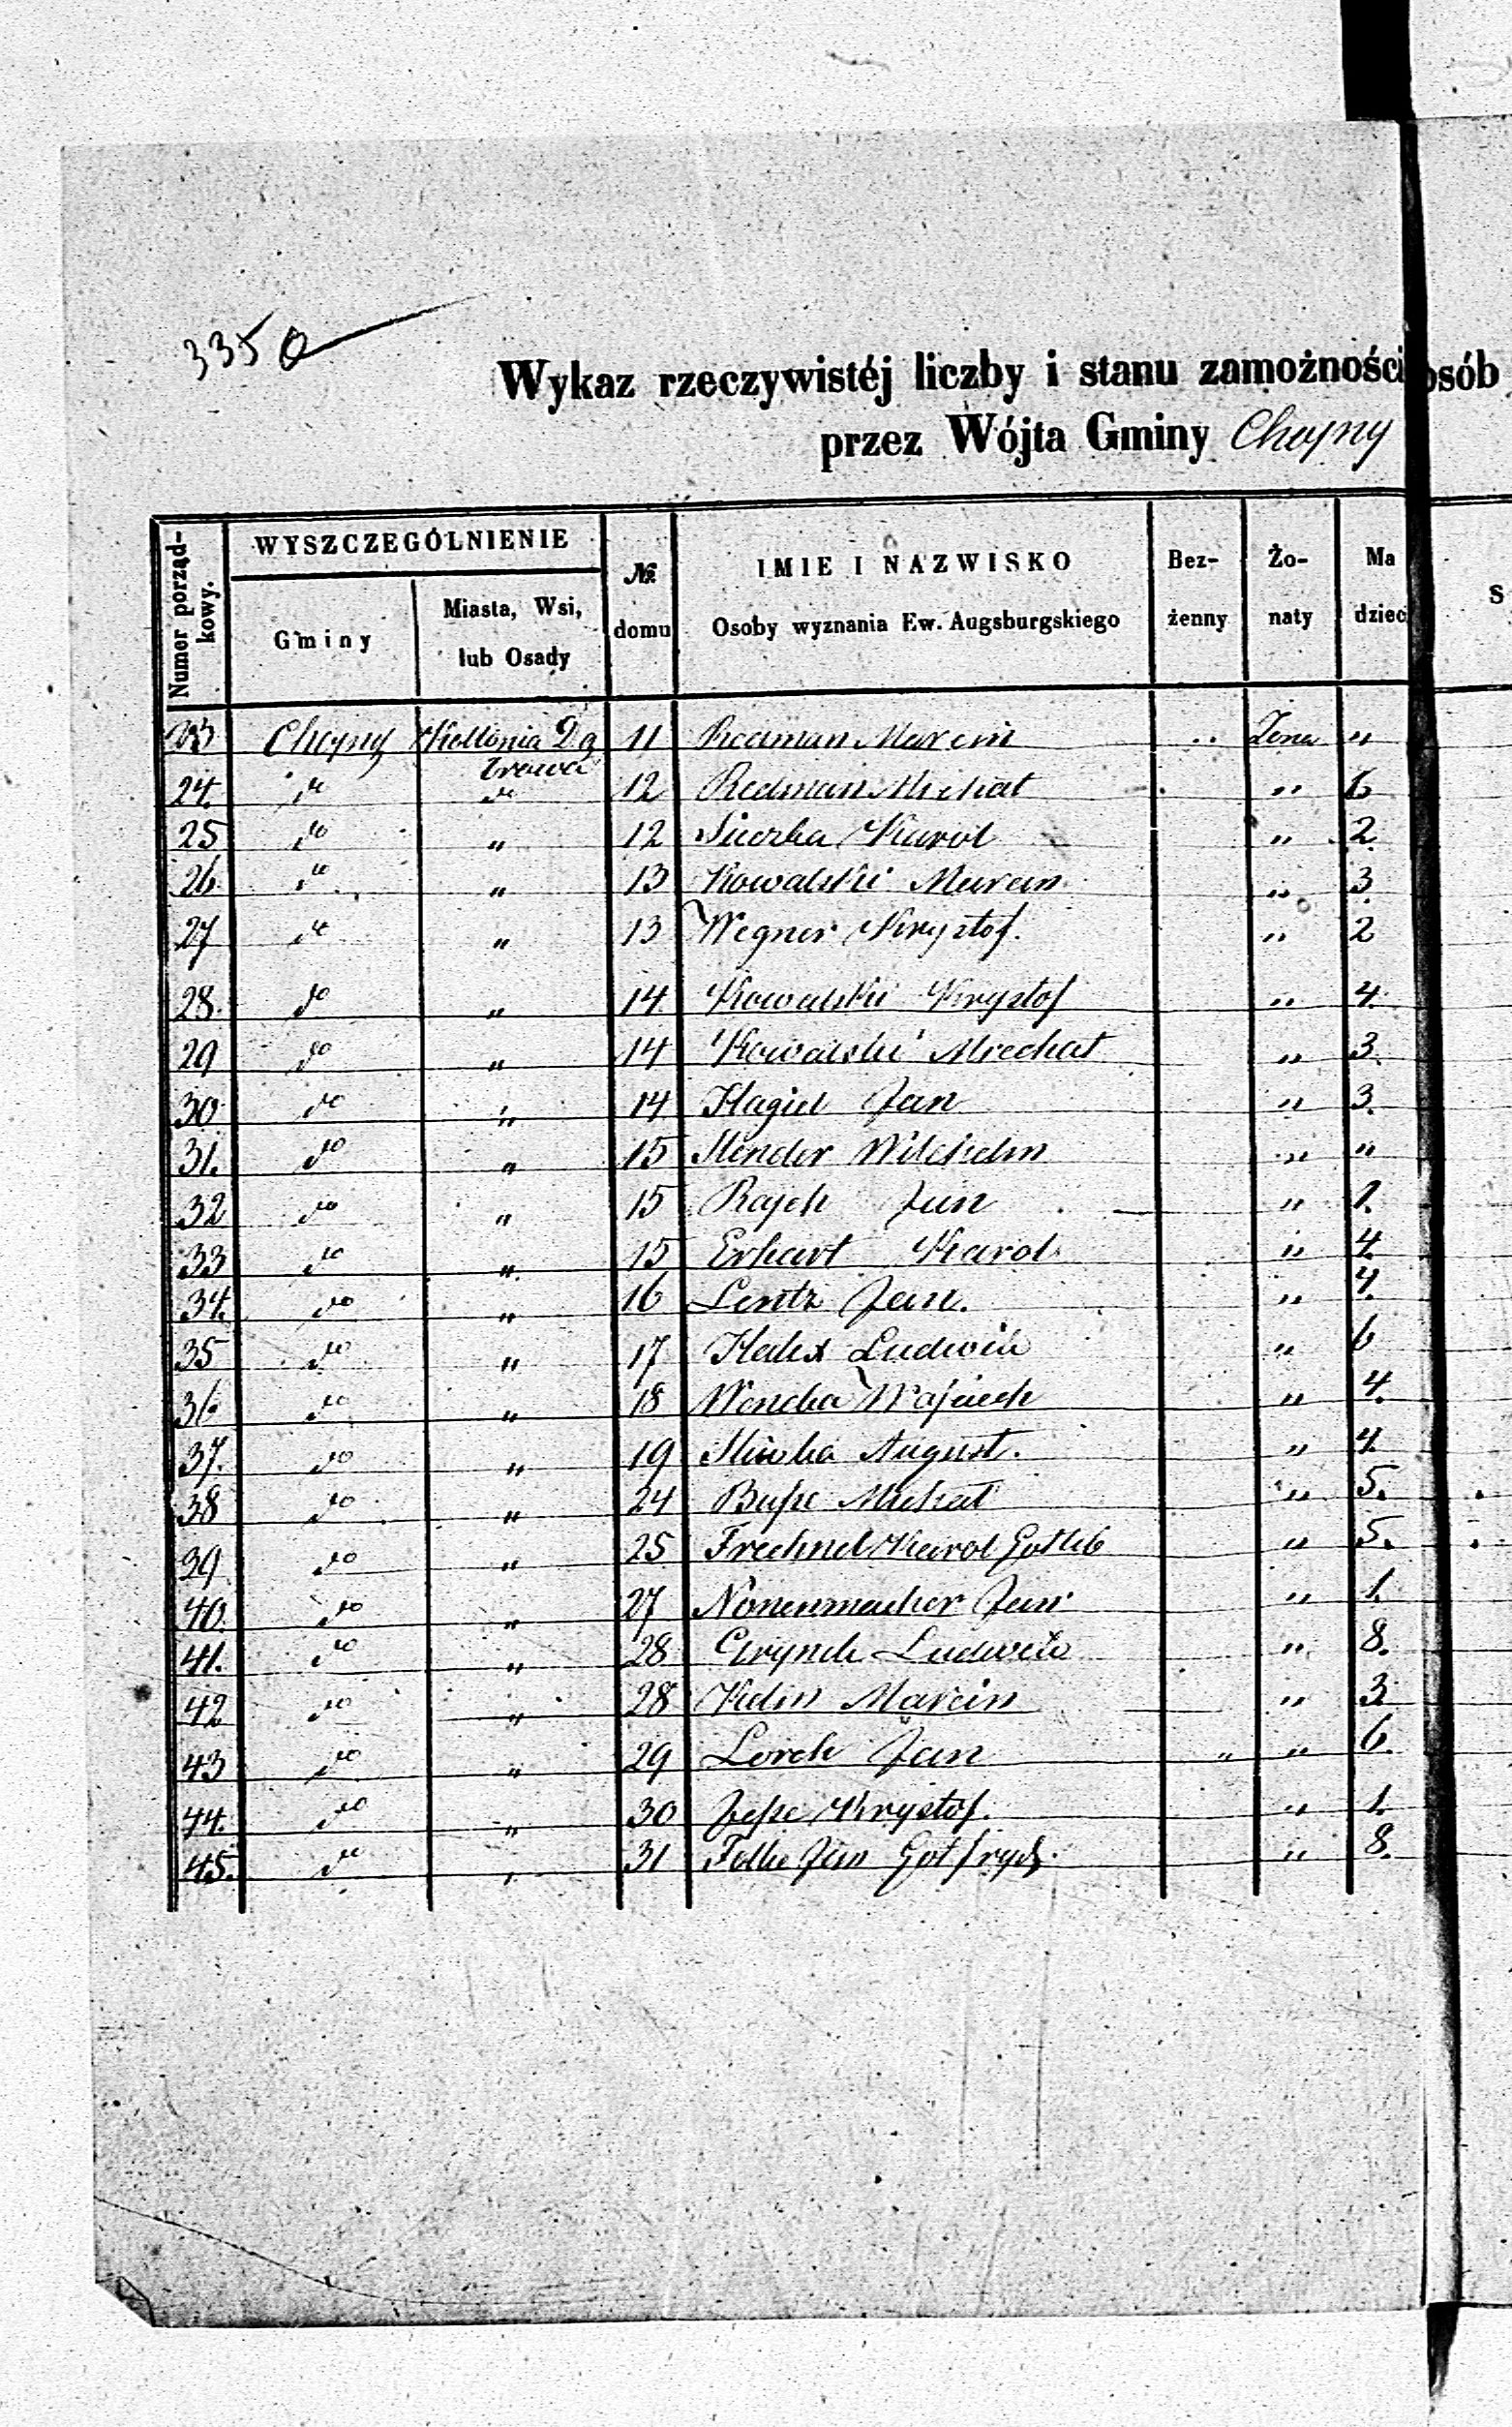 335
Wykaz rzeczywistéj liczby i stanu zamożności osób
przez Wójta Gminy Chojny
Numer porząd-kowy.
WYSZCZEGÓLNIENIE
Gminy
Miasta, Wsi, lub Osady
№ domu
IMIE I NAZWISKO
Osoby wyznania Ew. Augsburgskiego
Bez-żenny
Żo-naty
Ma dzieci
S
23 Chojny Kollonia Dą 11 Redman Marcin Żona "
browa
24. do do 12 Redman Michał " 6
25 do " 12 Karol " 2
26. do " 13 Kowalski Marcin " 3
27 do " 13 Wegner Krysztof. " 2
28. do " 14. Kowalski Krysztof " 4.
29 do " 14 Kowalski Michał " 3.
30. do " 14 Jan " 3.
31. do " 15 Wilchelm " "
32 do " 15 Rajch Jan "
33 do " 15 Erhart Karol " 4.
34. do " 16 Lentz Jan. " 4.
35 do " 17 Ludwik " 6
36 do " 18 Wojciech " 4.
37. do " 19 August. " 4.
38 do " 24 Buſse Michał " 5.
39 do " 25 Frechnel Karol Gotlib " 5.
40. do " 27 Nonenmacher Jan " 1.
41. do " 28 Ludwik " 8.
42 do " 28 Marcin " 3
43 do " 29 Lorch Jan " " 6.
44. do " 30 Jeſse Krysztof. " 1.
45. do " 31 Jan Gotfryd. " 8.